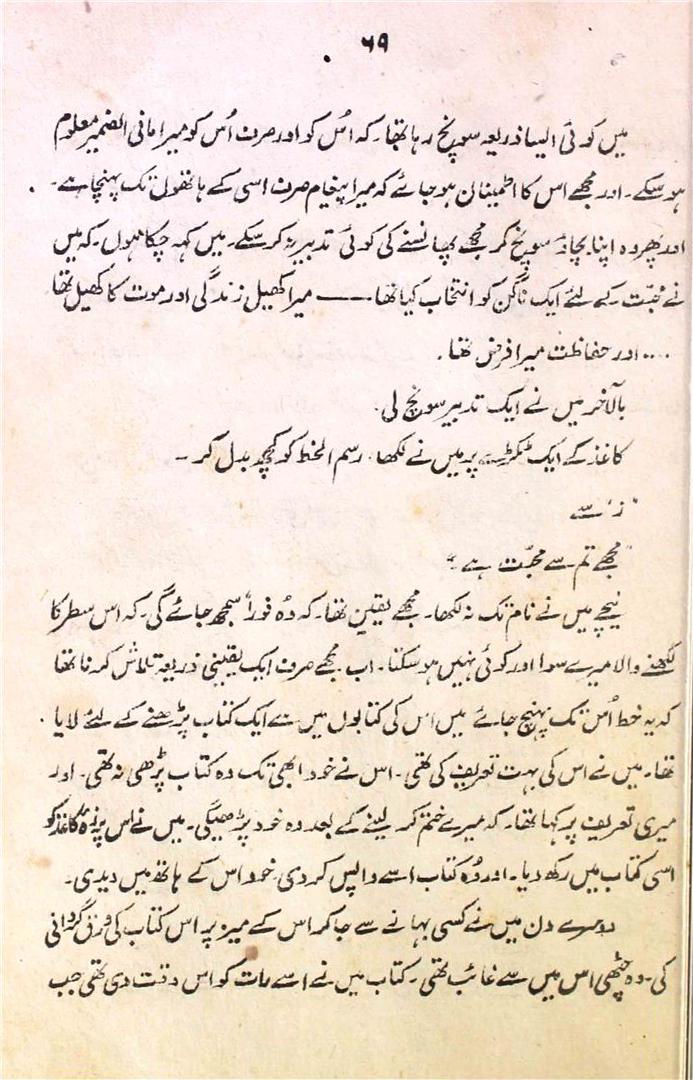 ۶۹
میں کوئی ایسا ذریعہ سوپنچ رہا تھا۔ کہ اُس کو اور صرف اُس کو میرا مافی الضمیر معلوم
ہو سکے۔ اور مجھے اس کا اطمینان ہو جائے کہ میرا پیغام صرف اسی کے ہاتھوں تک پہنچا ہے۔
اور پھر وہ اپنا بچاؤ سوپنچ کر مجھے پھانسنے کی کوئی تدبیر نہ کر سکے۔ میں کہہ چکا ہوں۔ کہ میں
نے محبّت کے لئے ایک ناگن کو انتخاب کیا تھا —— میرا کھیل زندگی اور موت کا کھیل تھا
.... اور حفاظت میرا فرض تھا۔
بالآخر میں نے ایک تدبیر سونچ لی۔
کاغذ کے ایک ٹکڑے پر میں نے لکھا۔ رسم الخط کو کچھ بدل کر ۔
"ز' سے
"مجھے تم سے محبّت ہے"
نیچے میں نے نام تک نہ لکھا۔ مجھے یقین تھا۔ کہ وُہ فوراً سمجھ جائے گی۔ کہ اس سطر کا
لکھنے والا میرے سوا اور کوئی نہیں ہو سکتا۔ اب مجھے صرف ایک یقینی ذریعہ تلاش کرنا تھا
کہ یہ خط اُس تک پہنچ جائے میں اس کی کتابوں میں سے ایک کتاب پڑھنے کے لئے لایا
تھا۔ میں نے اس کی بہت تعریف کی تھی۔ اس نے خود ابھی تک وہ کتاب پڑھی نہ تھی۔ اور
میری تعریف پر کہا تھا۔ کہ میرے ختم کر لینے کے بعد وہ خود پڑھیگی۔ میں نے اس پرزہ کاغذ کو
اسی کتاب میں رکھ دیا۔ اور وُہ کتاب اسے واپس کر دی۔ خود اس کے ہاتھ میں دیدی۔
دوسرے دن میں نے کسی بہانے سے جا کر اس کے میز پر اس کتاب کی ورق گردانی
کی۔ وہ چٹھی اس میں سے غائب تھی۔ کتاب میں نے اسے رات کو اس وقت دی تھی جب